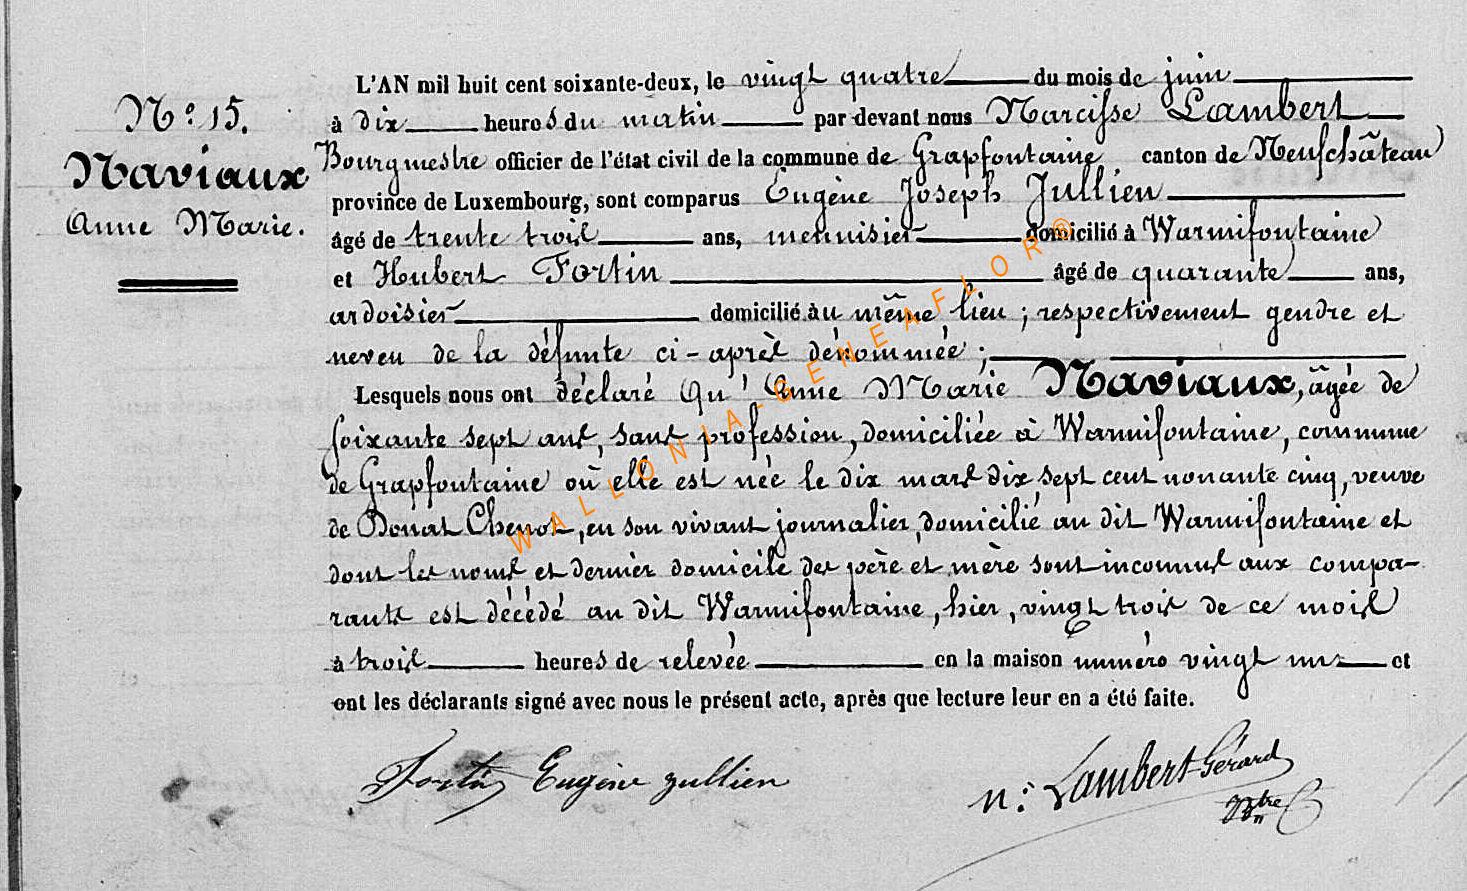 L'AN mil huit cent soixante-deux, le vingt quatre du mois de juin
N.° 15.
à dix heures du matin par devant nous Narcisse Lambert
Naviaux
Bourgmestre officier de l'état civil de la commune de Grapfontaine canton de Neufchâteau
Anne Marie.
province de Luxembourg, sont comparus Eugène Joseph Jullien
âgé de trente trois ans, menuisier domicilié à Warmifontaine
et Hubert Fortin âgé de quarante ans,
ardoisier domicilié au même lieu ; respectivement gendre et
neveu de la défunte ci-après dénommée ;
Lesquels nous ont déclaré Qu'Anne Marie Naviaux, âgée de
soixante sept ans, sans profession, domiciliée à Warmifontaine, commune
de Grapfontaine où elle est née le dix mars dix sept cent nonante cinq, veuve
de Donat Chenot, en son vivant journalier, domicilié au dit Warmifontaine et
dont les noms et dernier domicile des père et mère sont inconnus aux compa-
rants est décédé au dit Warmifontaine, hier, vingt trois de ce mois
à trois heures de relevée en la maison numéro vingt un et
ont les déclarants signé avec nous le présent acte, après que lecture leur en a été faite.
Fortin Eugène Jullien N: Lambert-Gérard
Btre
WALLONIA-GENEAFLOR®